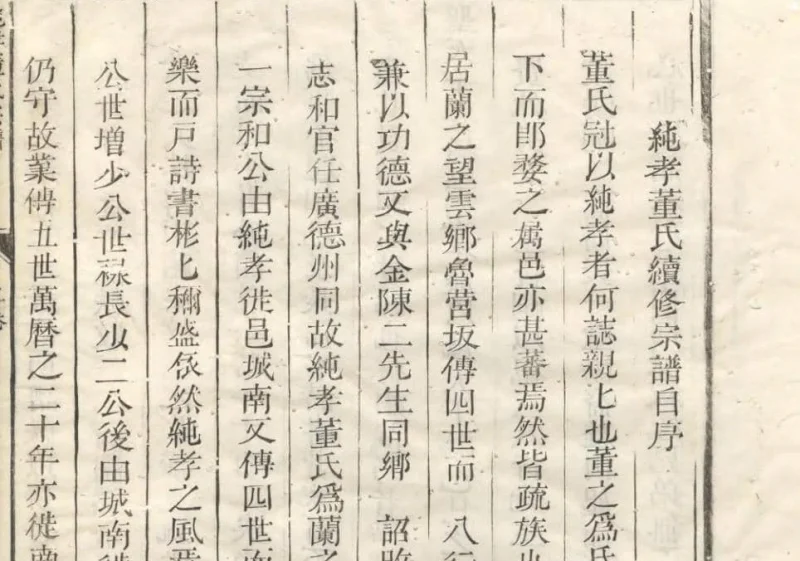 純孝董氏續修宗譜自序
董氏冠以純孝者何誌親匕也董之爲氏
下而即婺之属邑亦甚蕃焉然皆疏族
居蘭之望雲鄉魯营坂傳四世而 八行
兼以功德又與金陳二先生同鄉 詔
志和官任廣德州同故純孝董氏爲蘭之
一宗和公由純孝徙邑城南又傳四世而
樂而戸詩書彬匕穪盛依然純孝之風焉
公世增少公世禄長少二公後由城南徙
仍守故業傳五世萬曆之二十年亦徙南